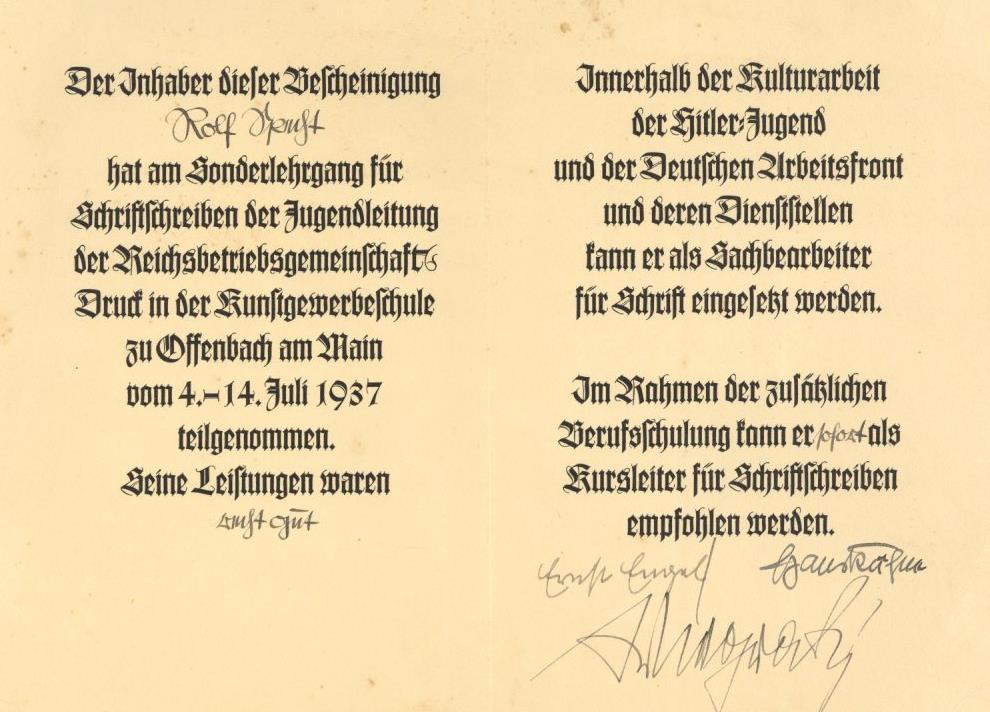 Der Inhaber dieser Bescheinigung
Rolf Specht
hat am Sonderlehrgang für
Schriftschreiben der Jugendleitung
der Reichsbetriebsgemeinschaft 6
Druck in der Kunstgewerbeschule
zu Offenbach am Main
vom 4.–14. Juli 1937
teilgenommen.
Seine Leistungen waren
recht gut
Innerhalb der Kulturarbeit
der Hitler-Jugend
und der Deutschen Arbeitsfront
und deren Dienststellen
kann er als Sachbearbeiter
für Schrift eingesetzt werden.
Im Rahmen der zusätzlichen
Berufsschulung kann er sofort als
Kursleiter für Schriftschreiben
empfohlen werden.
Ernst Engel Hans Kühne